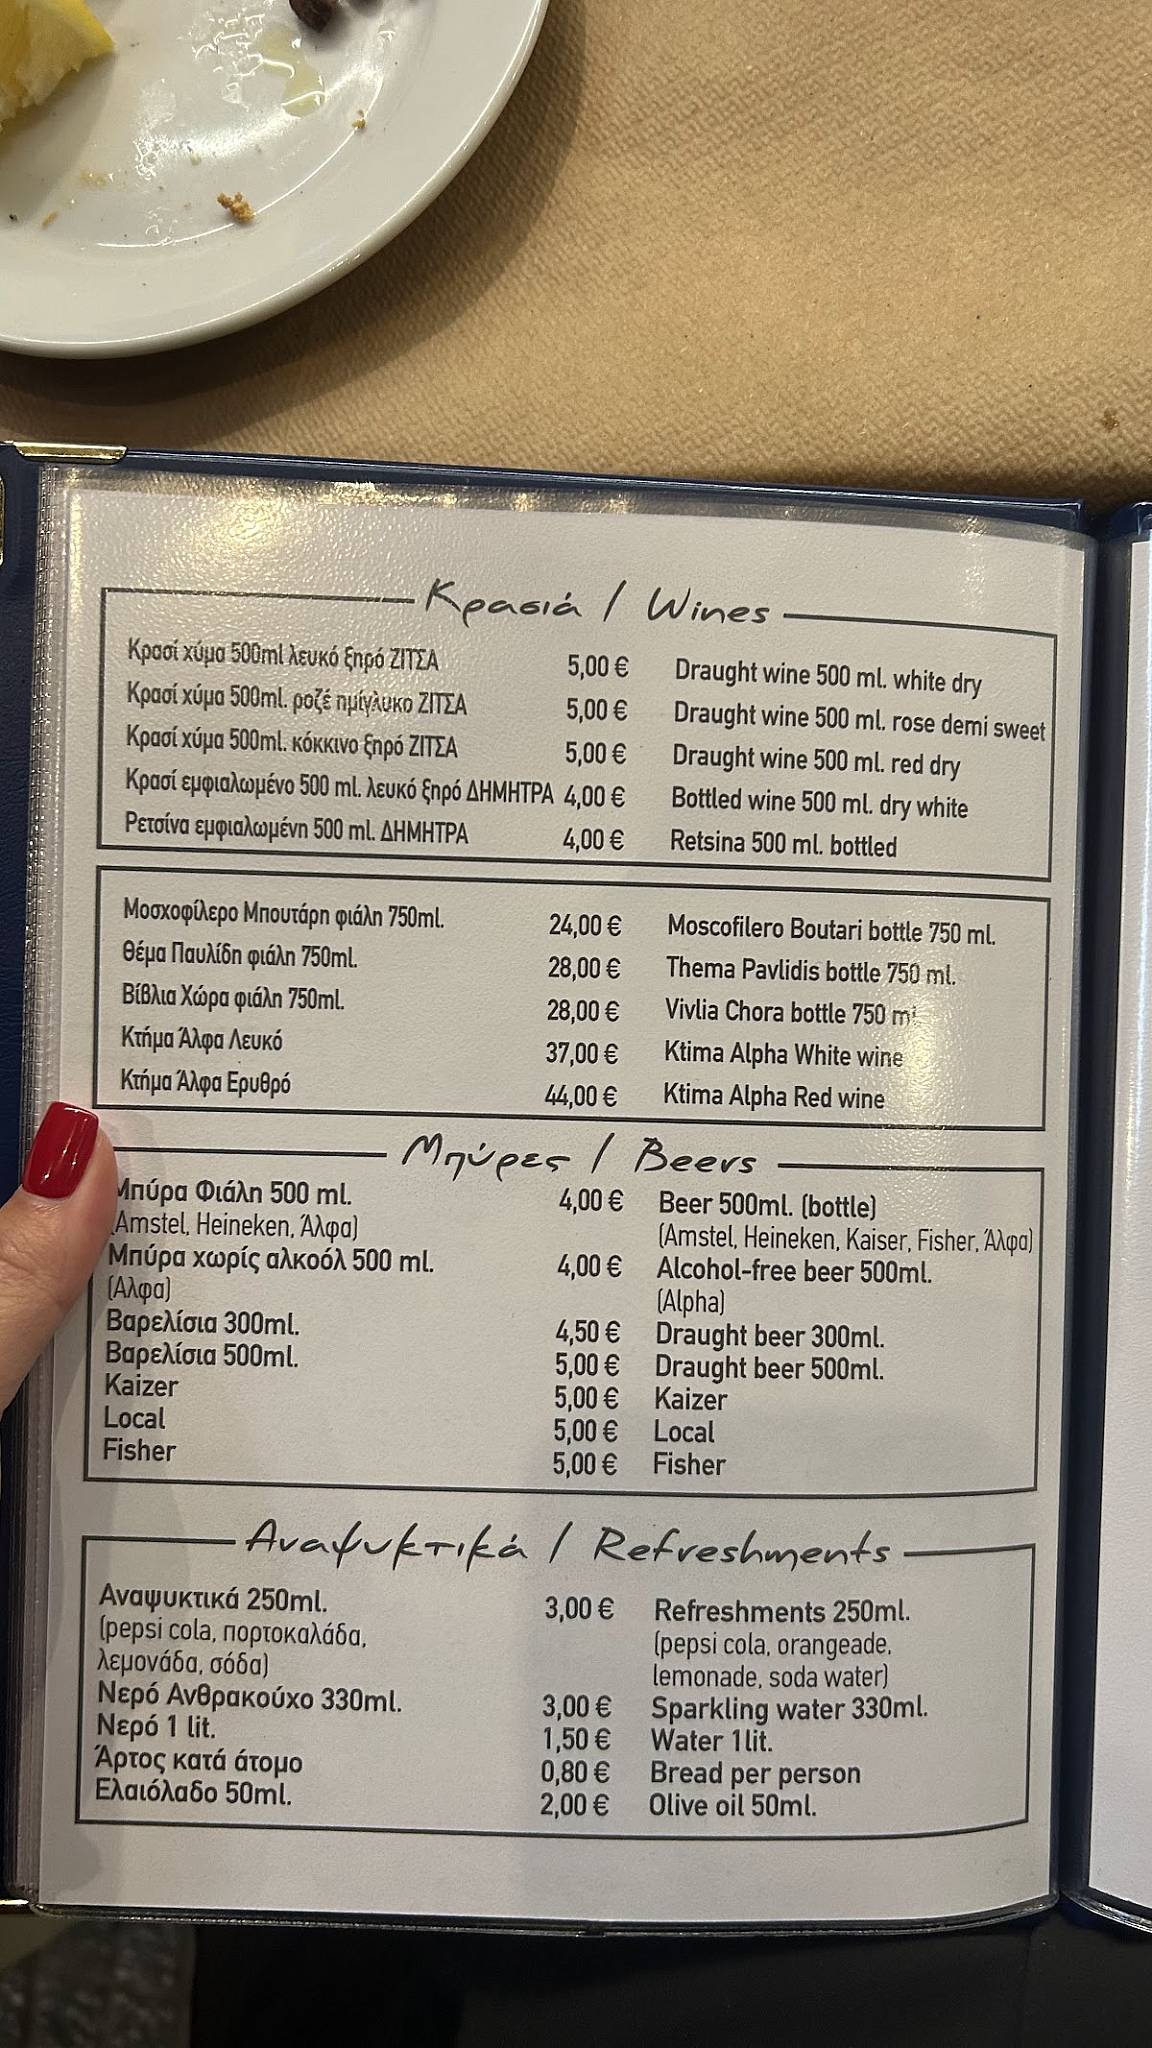 Κρασιά / Wines
Κρασί χύμα 500ml λευκό ξηρό ΖΙΤΣΑ 5,00 € Draught wine 500 ml. white dry
Κρασί χύμα 500ml. ροζέ ημίγλυκο ΖΙΤΣΑ 5,00 € Draught wine 500 ml. rose demi sweet
Κρασί χύμα 500ml. κόκκινο ξηρό ΖΙΤΣΑ 5,00 € Draught wine 500 ml. red dry
Κρασί εμφιαλωμένο 500 ml. λευκό ξηρό ΔΗΜΗΤΡΑ 4,00 € Bottled wine 500 ml. dry white
Ρετσίνα εμφιαλωμένη 500 ml. ΔΗΜΗΤΡΑ 4,00 € Retsina 500 ml. bottled
Μοσχοφίλερο Μπουτάρη φιάλη 750ml. 24,00 € Moscofilero Boutari bottle 750 ml.
Θέμα Παυλίδη φιάλη 750ml. 28,00 € Thema Pavlidis bottle 750 ml.
Βίβλια Χώρα φιάλη 750ml. 28,00 € Vivlia Chora bottle 750 ml
Κτήμα Άλφα Λευκό 37,00 € Ktima Alpha White wine
Κτήμα Άλφα Ερυθρό 44,00 € Ktima Alpha Red wine
Μπύρες / Beers
Μπύρα Φιάλη 500 ml. 4,00 € Beer 500ml. (bottle)
(Amstel, Heineken, Άλφα) (Amstel, Heineken, Kaiser, Fisher, Άλφα)
Μπύρα χωρίς αλκοόλ 500 ml. 4,00 € Alcohol-free beer 500ml.
(Αλφα) (Alpha)
Βαρελίσια 300ml. 4,50 € Draught beer 300ml.
Βαρελίσια 500ml. 5,00 € Draught beer 500ml.
Kaizer 5,00 € Kaizer
Local 5,00 € Local
Fisher 5,00 € Fisher
Αναψυκτικά / Refreshments
Αναψυκτικά 250ml. 3,00 € Refreshments 250ml.
(pepsi cola, πορτοκαλάδα, (pepsi cola, orangeade,
λεμονάδα, σόδα) lemonade, soda water)
Νερό Ανθρακούχο 330ml. 3,00 € Sparkling water 330ml.
Νερό 1 lit. 1,50 € Water 1lit.
Άρτος κατά άτομο 0,80 € Bread per person
Ελαιόλαδο 50ml. 2,00 € Olive oil 50ml.